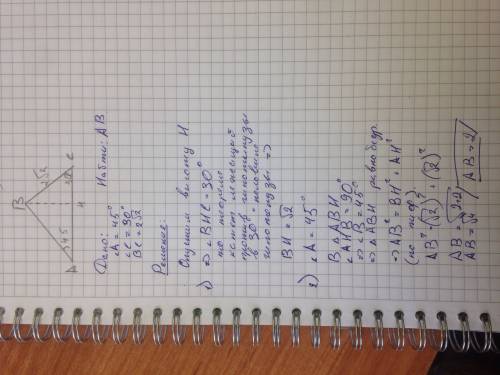 B
2√2
A 45 H 30 C
Дано:
∠A = 45°
∠C = 30°
BC = 2√2
Найти: AB
Решение:
Опустим высоту H
1) ⇒ ∠BHC = 90°
по теореме
катет лежащий
против гипотенузы
в 30° = половине
гипотенузы ⇒
BH = √2
2) ∠A = 45°
В △ABH
∠AHB = 90°
⇒ ∠B = 45°
⇒ △ABH равнобедр.
⇒ AB² = BH² + AH²
AB² = (√2)² + (√2)²
AB = √2+2
AB = √4
AB = 2